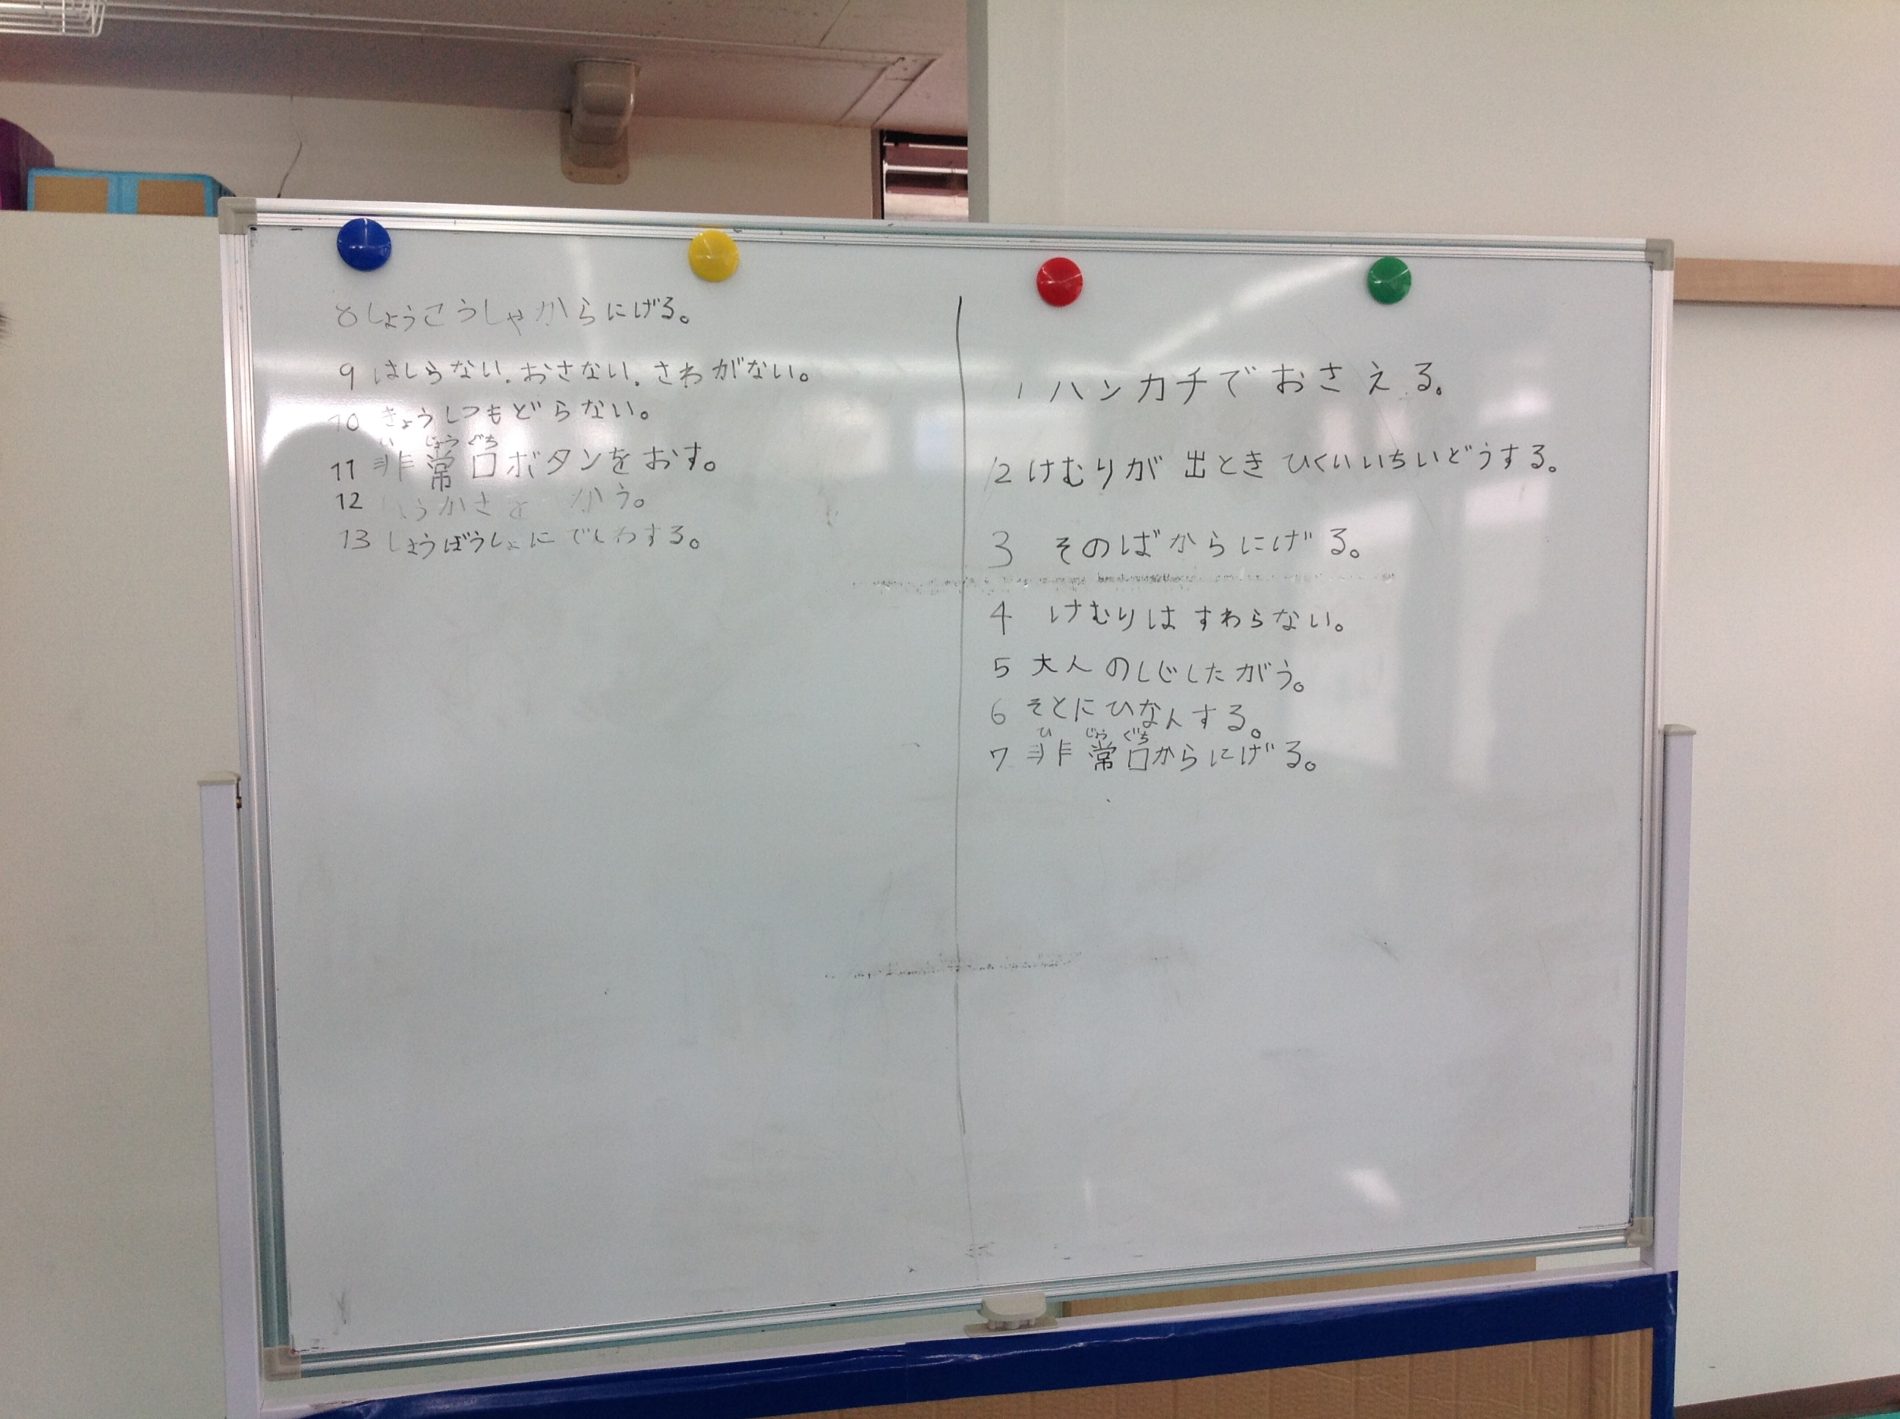 1 ハンカチでおさえる。
2 けむりが 出とき ひくいいちいどうする。
3 そのばからにげる。
4 けむりは すわらない。
5 大人のしじしたがう。
6 そとにひなんする。
ひ じょう ぐち
7 非常口からにげる。
8 しょうこうしゃからにげる。
9 はしらない.おさない.さわがない。
10 きょうしつもどらない。
ひ じょう ぐち
11 非常口ボタンをおす。
12 かう。
13 しょうぼうしょにでんわする。